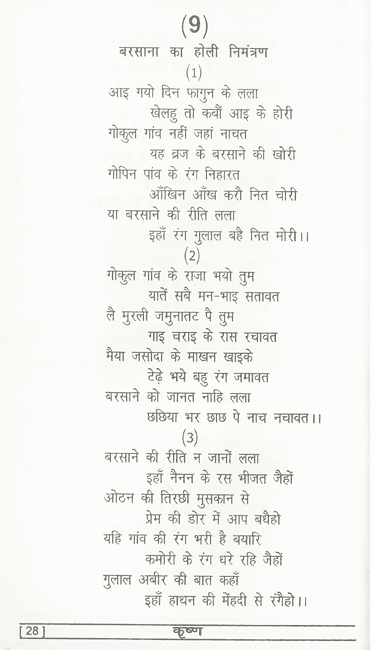 (9)
बरसाना का होली निमंत्रण
(1)
आइ गयो दिन फागुन के लला
खेलहु तो कबौं आइ के होरी
गोकुल गांव नहीं जहां नाचत
यह ब्रज के बरसाने की खोरी
गोपिन पांव के रंग निहारत
आँखिन आँख करौ नित चोरी
या बरसाने की रीति लला
इहाँ रंग गुलाल बहै नित मोरी।।
(2)
गोकुल गांव के राजा भयो तुम
यातें सबै मन-भाइ सतावत
लै मुरली जमुनातट पै तुम
गाइ चराइ के रास रचावत
मैया जसोदा के माखन खाइके
टेढ़े भये बहु रंग जमावत
बरसाने को जानत नाहि लला
छछिया भर छाछ पे नाच नचावत।।
(3)
बरसाने की रीति न जानों लला
इहाँ नैनन के रस भीजत जैहों
ओठन की तिरछी मुसकान से
प्रेम की डोर में आप बधैहो
यहि गांव की रंग भरी है बयारि
कमोरी के रंग धरे रहि जैहों
गुलाल अबीर की बात कहाँ
इहाँ हाथन की मेंहदी से रंगैहो।।
[28] कृष्ण